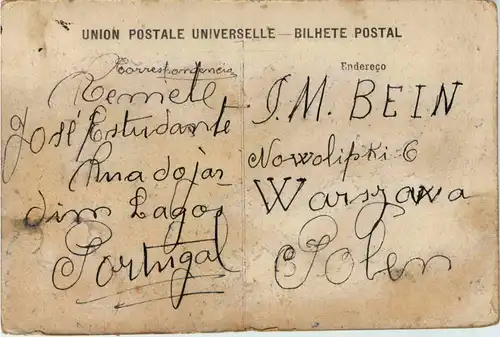 UNION POSTALE UNIVERSELLE — BILHETE POSTAL
Correspondencia
Remete
José Estudante
Rua do jar
dim Lagos
Portugal
Endereço
J. M. BEIN
Nowolipki 6
Warszawa
Polen